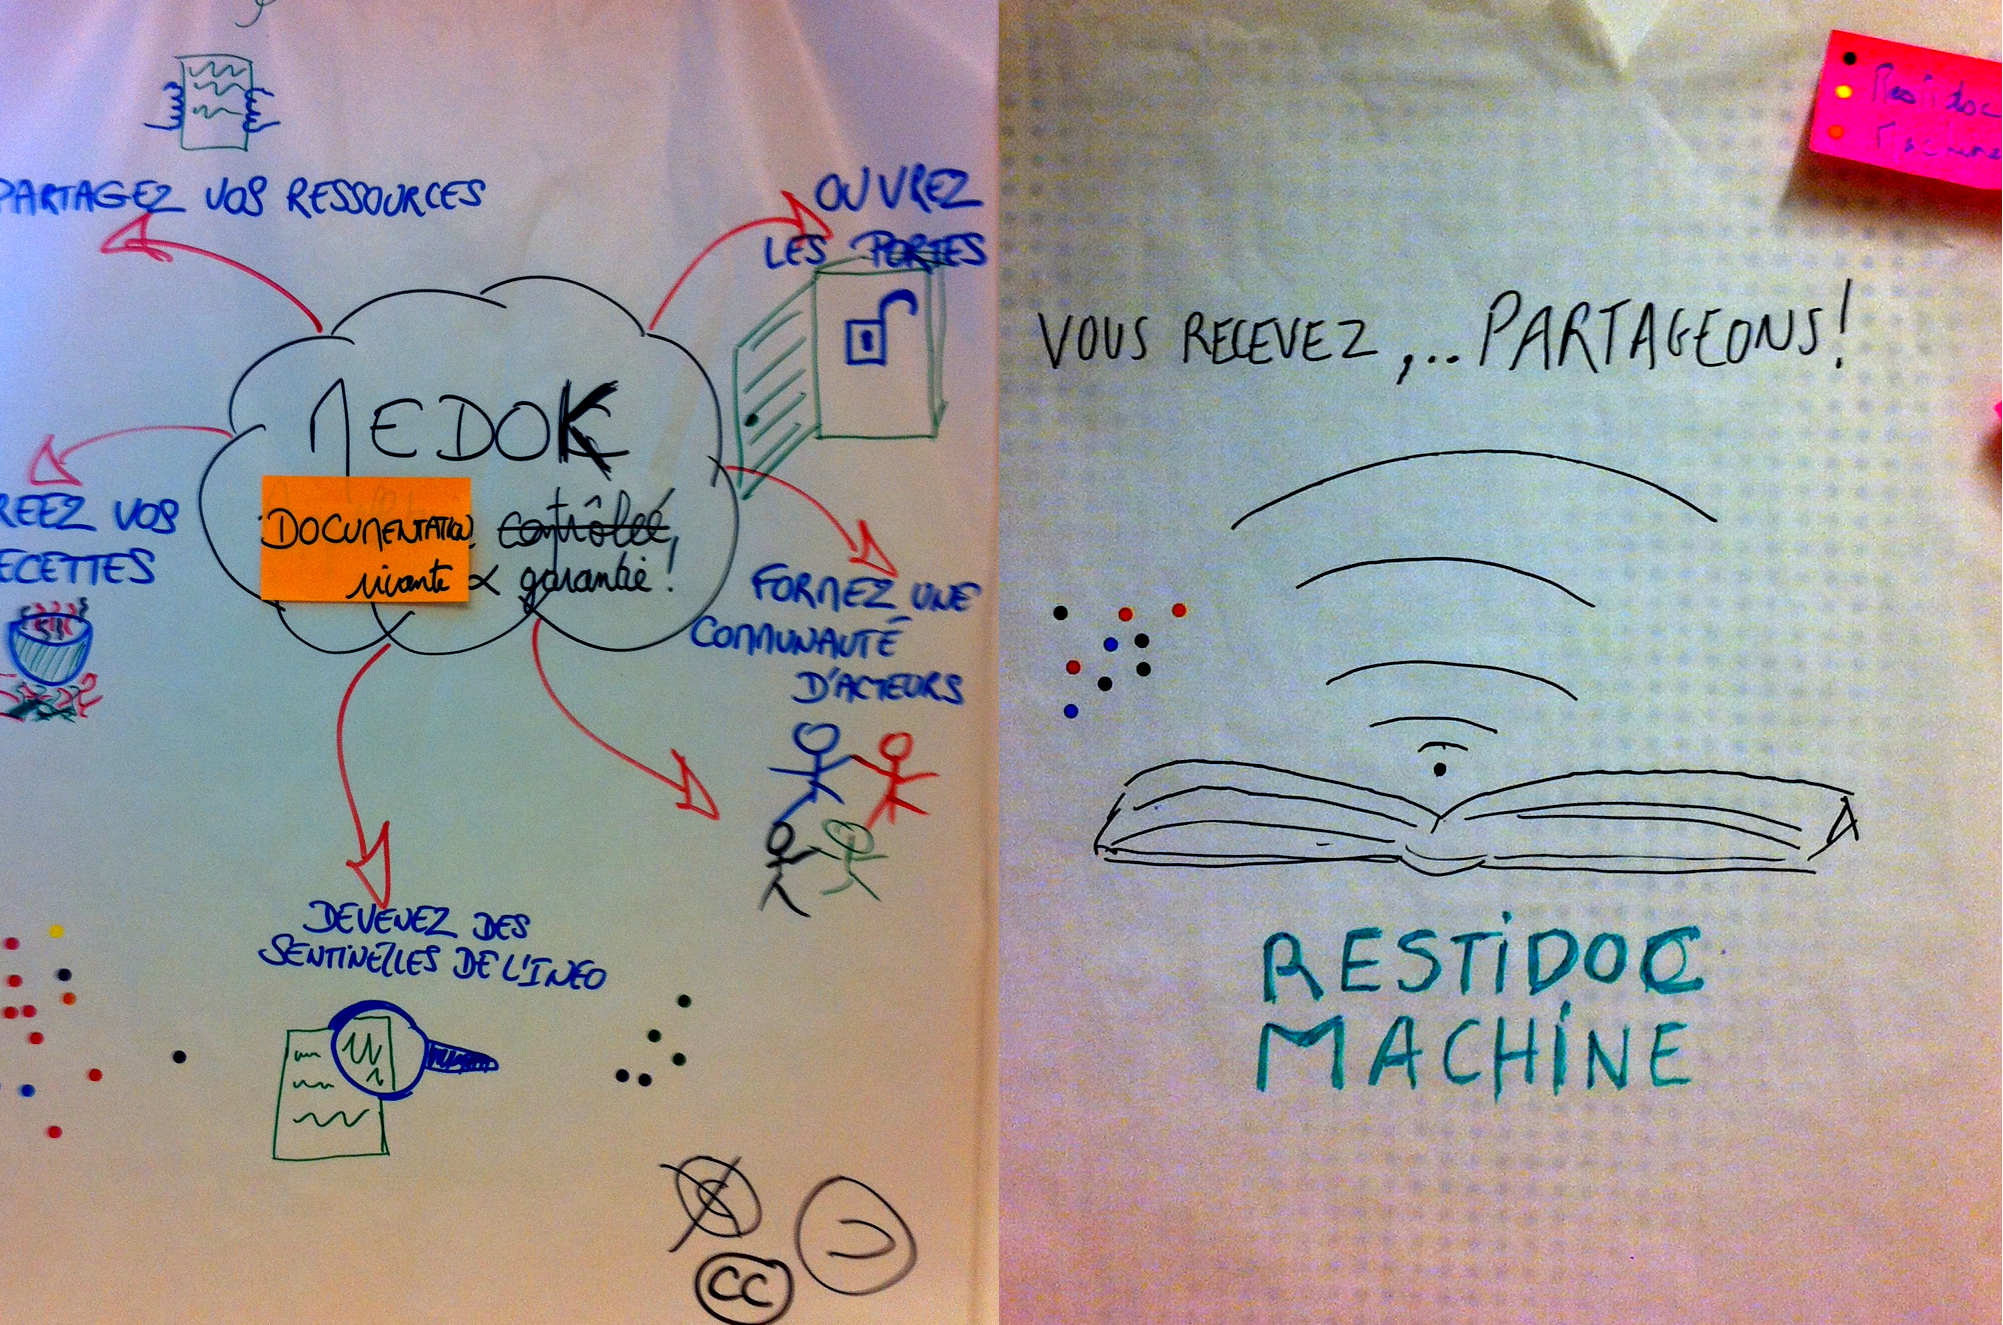 PARTAGEZ VOS RESSOURCES
OUVREZ
LES PORTES
MEDOK
DOCUMENTATION contrôlée,
vivante & garantie!
REEZ VOS
ECETTES
FORMEZ UNE
COMMUNAUTÉ
D'ACTEURS
DEVENEZ DES
SENTINELLES DE L'INFO
C
CC
Restidoc
Machine
VOUS RECEVEZ,... PARTAGEONS!
RESTIDOC
MACHINE